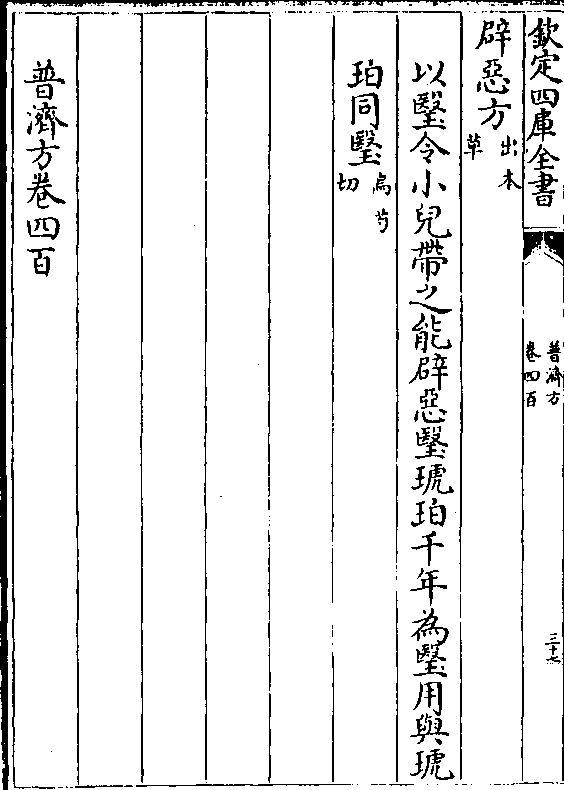 欽定四庫全書
普濟方
卷四百
三十七
辟惡方出本草
以瑿令小兒帶之能辟惡瑿琥珀千年為瑿用與琥
珀同瑿烏兮切
普濟方卷四百